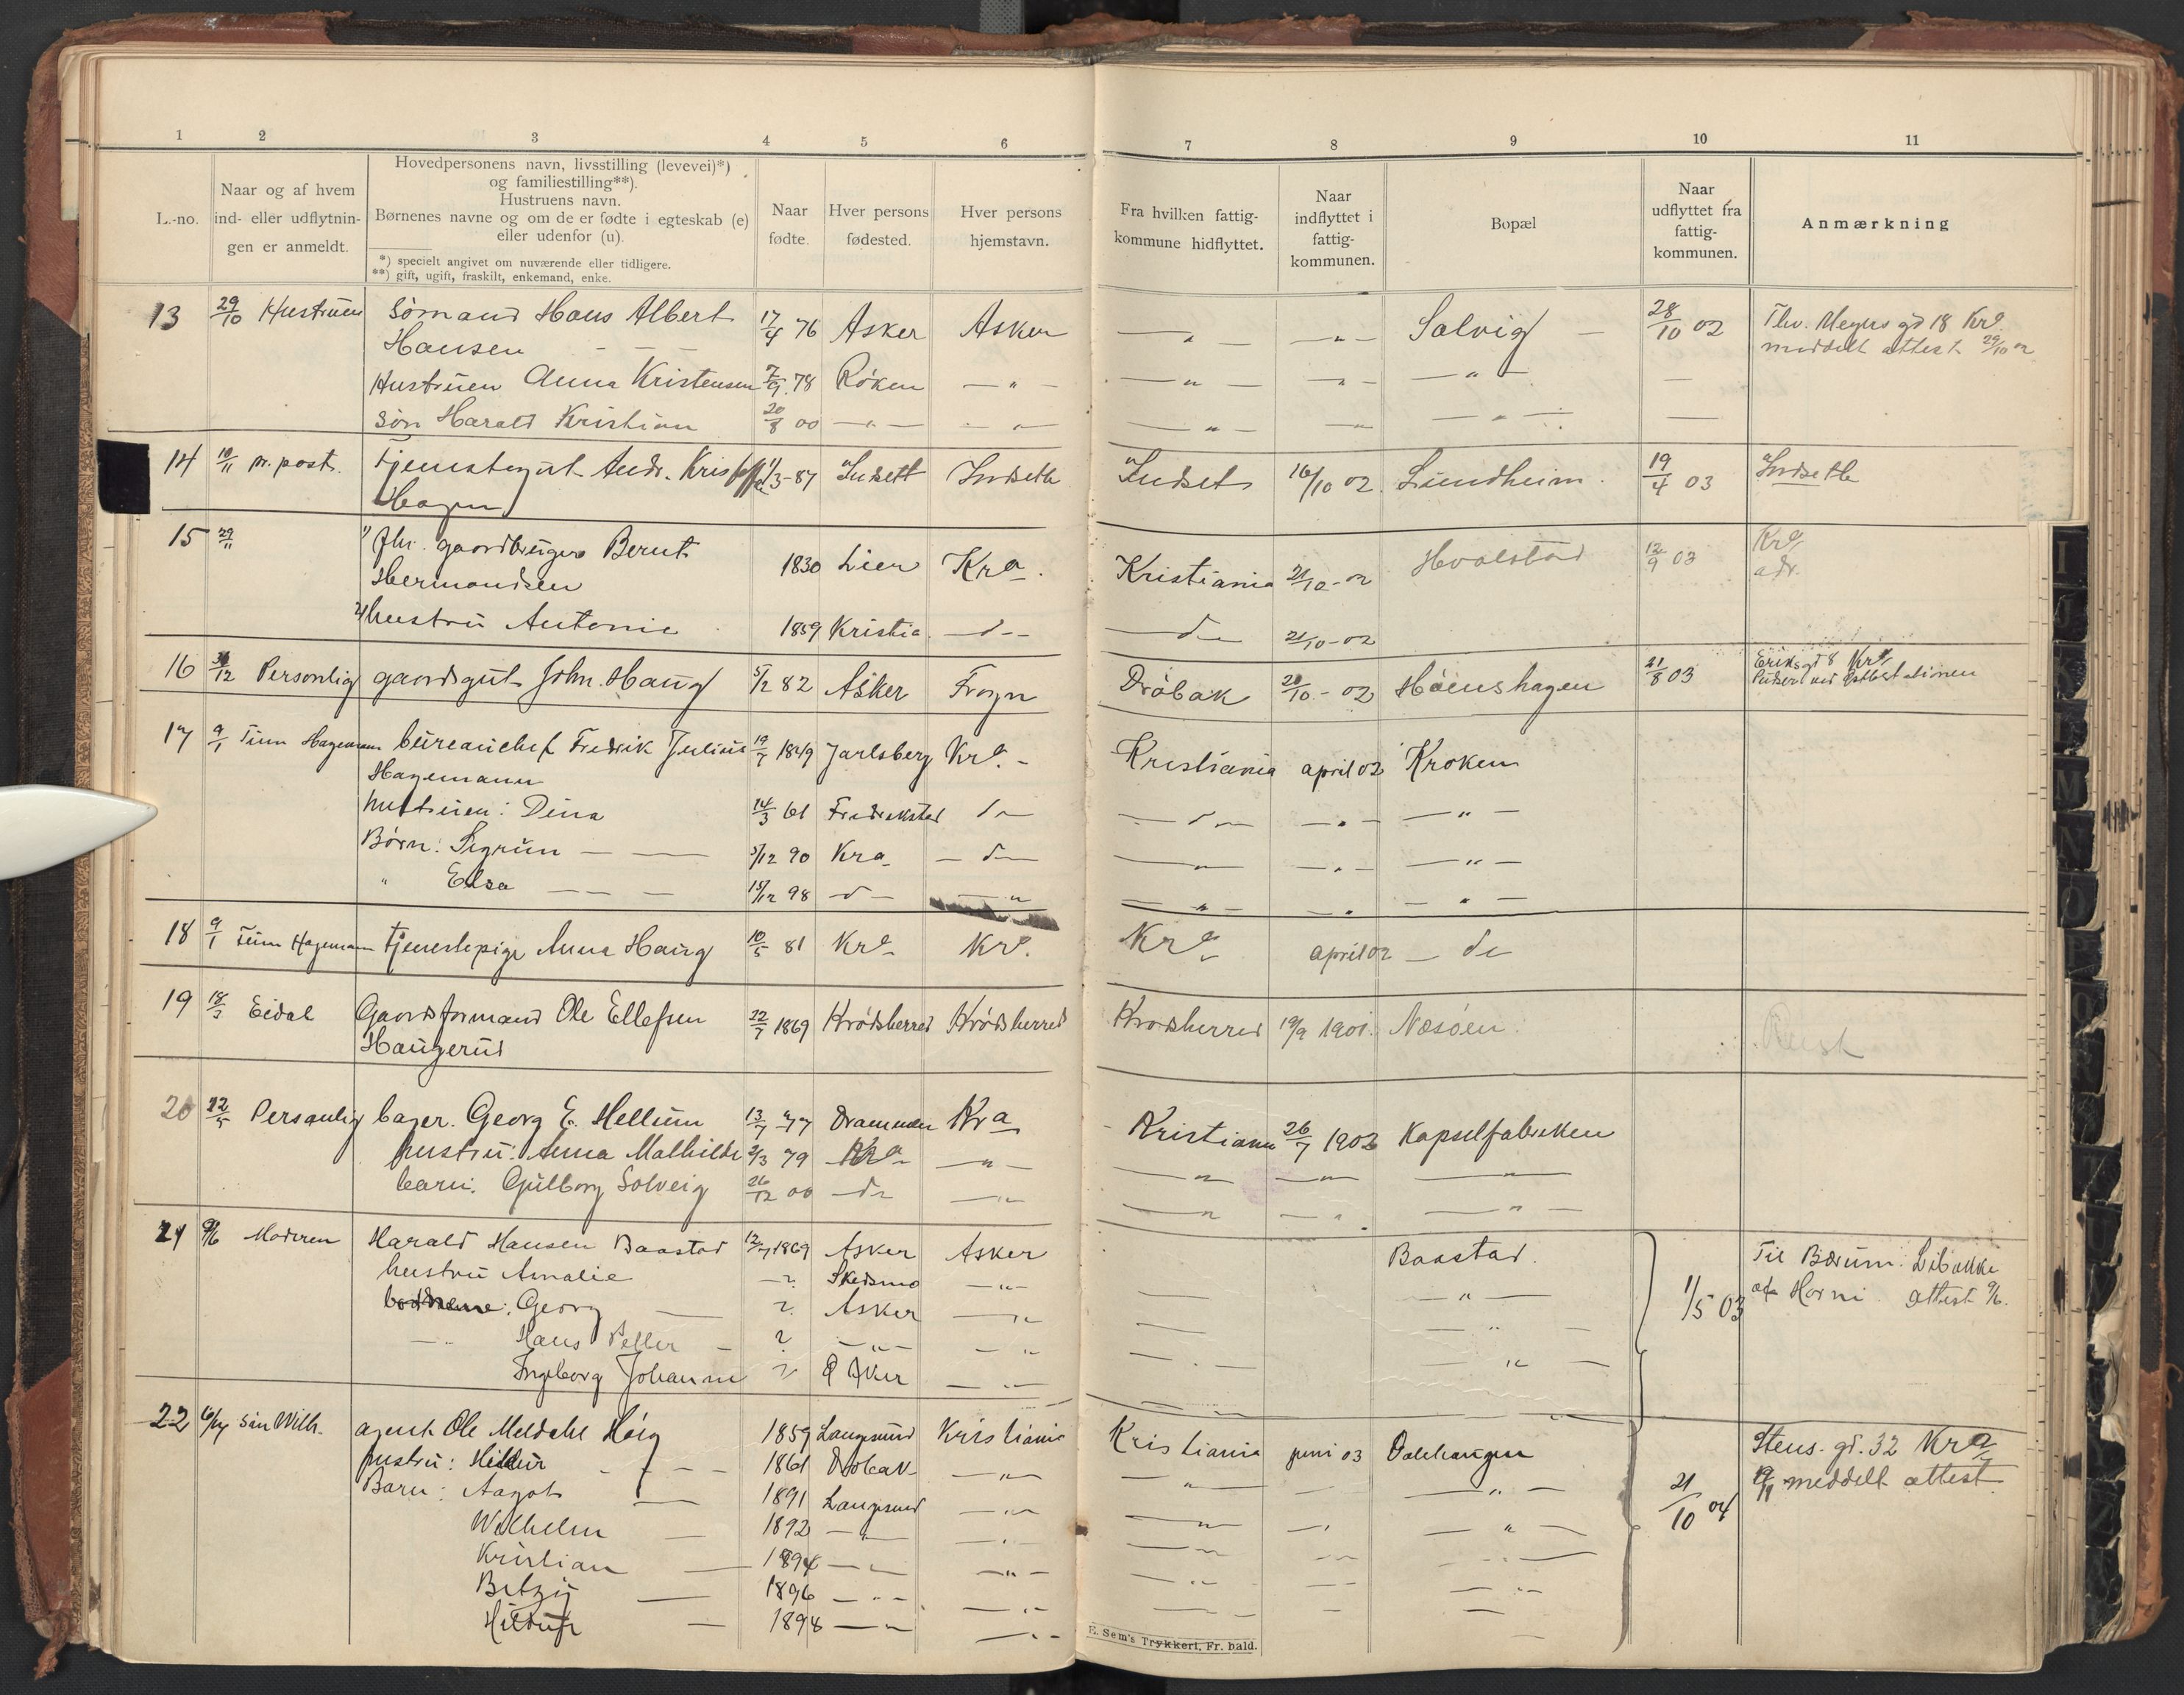 1 2 3 4 5 6 7 8 9 10 11
L.-no.
Naar og af hvem
ind- eller udflytnin-
gen er anmeldt.
Hovedpersonens navn, livsstilling (levevei)*)
og familiestilling**).
Hustruens navn.
Børnenes navne og om de er fødte i egteskab (e)
eller udenfor (u).
*) specielt angivet om nuværende eller tidligere.
**) gift, ugift, fraskilt, enkemand, enke.
Naar
fødte.
Hver persons
fødested.
Hver persons
hjemstavn.
Fra hvilken fattig-
kommune hidflyttet.
Naar
indflyttet i
fattig-
kommunen.
Bopæl
Naar
udflyttet fra
fattig-
kommunen.
Anmærkning
13 29/10 Hustruen Sømand Hans Albert 17/4 76 Asker Asker — " — — " — Solvig — 28/10 02 Thv. Meyers gd 18 Kra.
Hansen — — — meddelt attest 29/10 02
Hustruen Anna Kristensen 7/9 78 Røken — " — — " — — " — — " — —
Søn Harald Kristian 20/8 00 — " — — " — — " — — " — — " — —
14 10/11 pr. post. Tjenestegut Andr. Kristoffer 1/3-87 Indsett Indsetth Indset 16/10 02. Lundheim. 19/4 03 Indseth
Hagen
15 29/11 1) Fhv. gaardbruger Bernt 1830 Lier Kra. Kristiania 21/10-02 Hvalstad 12/9 03 Kra.
Hermandsen adr.
2) hustru Antonie 1859 Kristia. — d — — d — 21/10-02
16 31/12 Personlig gaardsgut John. Haug 5/12 82 Asker Frogn Drøbak 20/10-02 Høenshagen 21/8 03 Eriksgd 8 Kra.
Pudser ved Østbstationen
17 9/1 Finn Hagemann bureauchef Fredrik Julius 19/7 1849 Jarlsberg Kra. — Kristiania april 02 Kroken
Hagemann
hustruen: Dina 14/3 61 Fredrikstad do — do — — " — — " —
Børn: Sigrun — — 5/12 90 Kra. — do — " — — " — — " —
" Elsa — — — 15/12 98 — d — — " — " — — " — — " —
18 9/1 Finn Hagemann Tjenestepige Anna Haug 10/5 81 Kra. Kra. Kra. april 02 — do
19 18/3 Eidal Gaardsformand Ole Ellefsen 22/7 1869 Krødsherred Krødsherred Krødsherred 19/9 1901. Næsøen.
Haugerud
20 22/5 Personlig bager. Georg E. Hellum 13/7 77 Drammen Kra. Kristiania 26/7 1902 Kapselfabrikken
hustru: Anna Mathilde 2/3 79 Kra. — " — — " — — " — — " —
barn: Gulborg Solveig 26/12 00 — do — " — — " — — " — — " —
21 9/6 Moderen Harald Hansen Baastad 12/7 1869 Asker Asker Baastad. 1/5 03 Til Bærum. Libakke
hustru Amalie — ? Skedsmo — " — — — " — Horni. attest 9/6.
Georg — ? Asker — " — — — " —
Hans Petter — ? — " — — " — — — " —
Ingeborg Johanne ? Aker — " — —
22 6/7 Søn Wilh. agent Ole Meldahl Høeg 1859 Langesund Kristiania Kristiania juni 03 Dalehaugen 21/10 04 Stens-gd. 32 Kra.
hustru: Hildur — — — 1861 Drøbak — " — — " — — — " — meddelt attest
Barn: Aagot — 1891 Langesund — " — — " — — " — — " —
Wilhelm — 1892 — " — — " — — " —
Kristian — 1894 — " — — " —
Betzy — 1896 — " — — " —
Hildur — 1898 — " — — " —
E. Sem's Trykkeri, Fr. hald.
I J K L M N O P Q R S